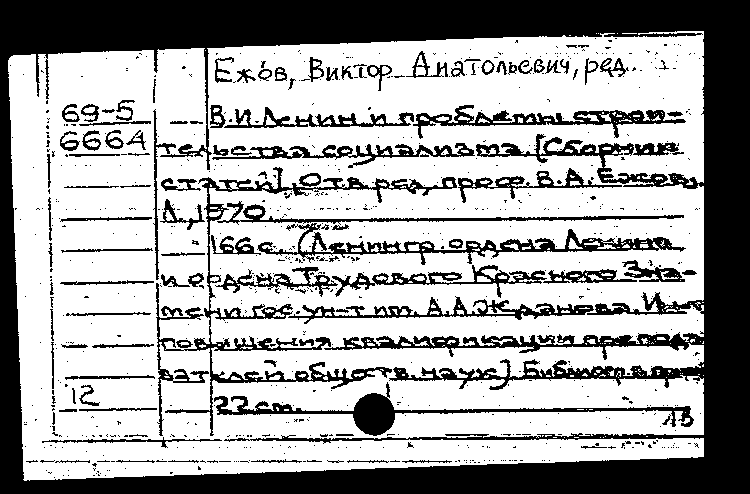 Ежов, Виктор Анатольевич, ред.
69-5
6664
В.И.Ленин и проблемы строи-
тельства социализма. [Сборник
статей]. Отв. ред. проф. В.А. Ежов.
Л., 1970.
166 с. (Ленингр. ордена Ленина
и ордена Трудового Красного Зна-
мени гос. ун-т им. А.А.Жданова. Ин-т
повышения квалификации препода-
вателей обществ. наук) Библиогр. в
12
22 см.